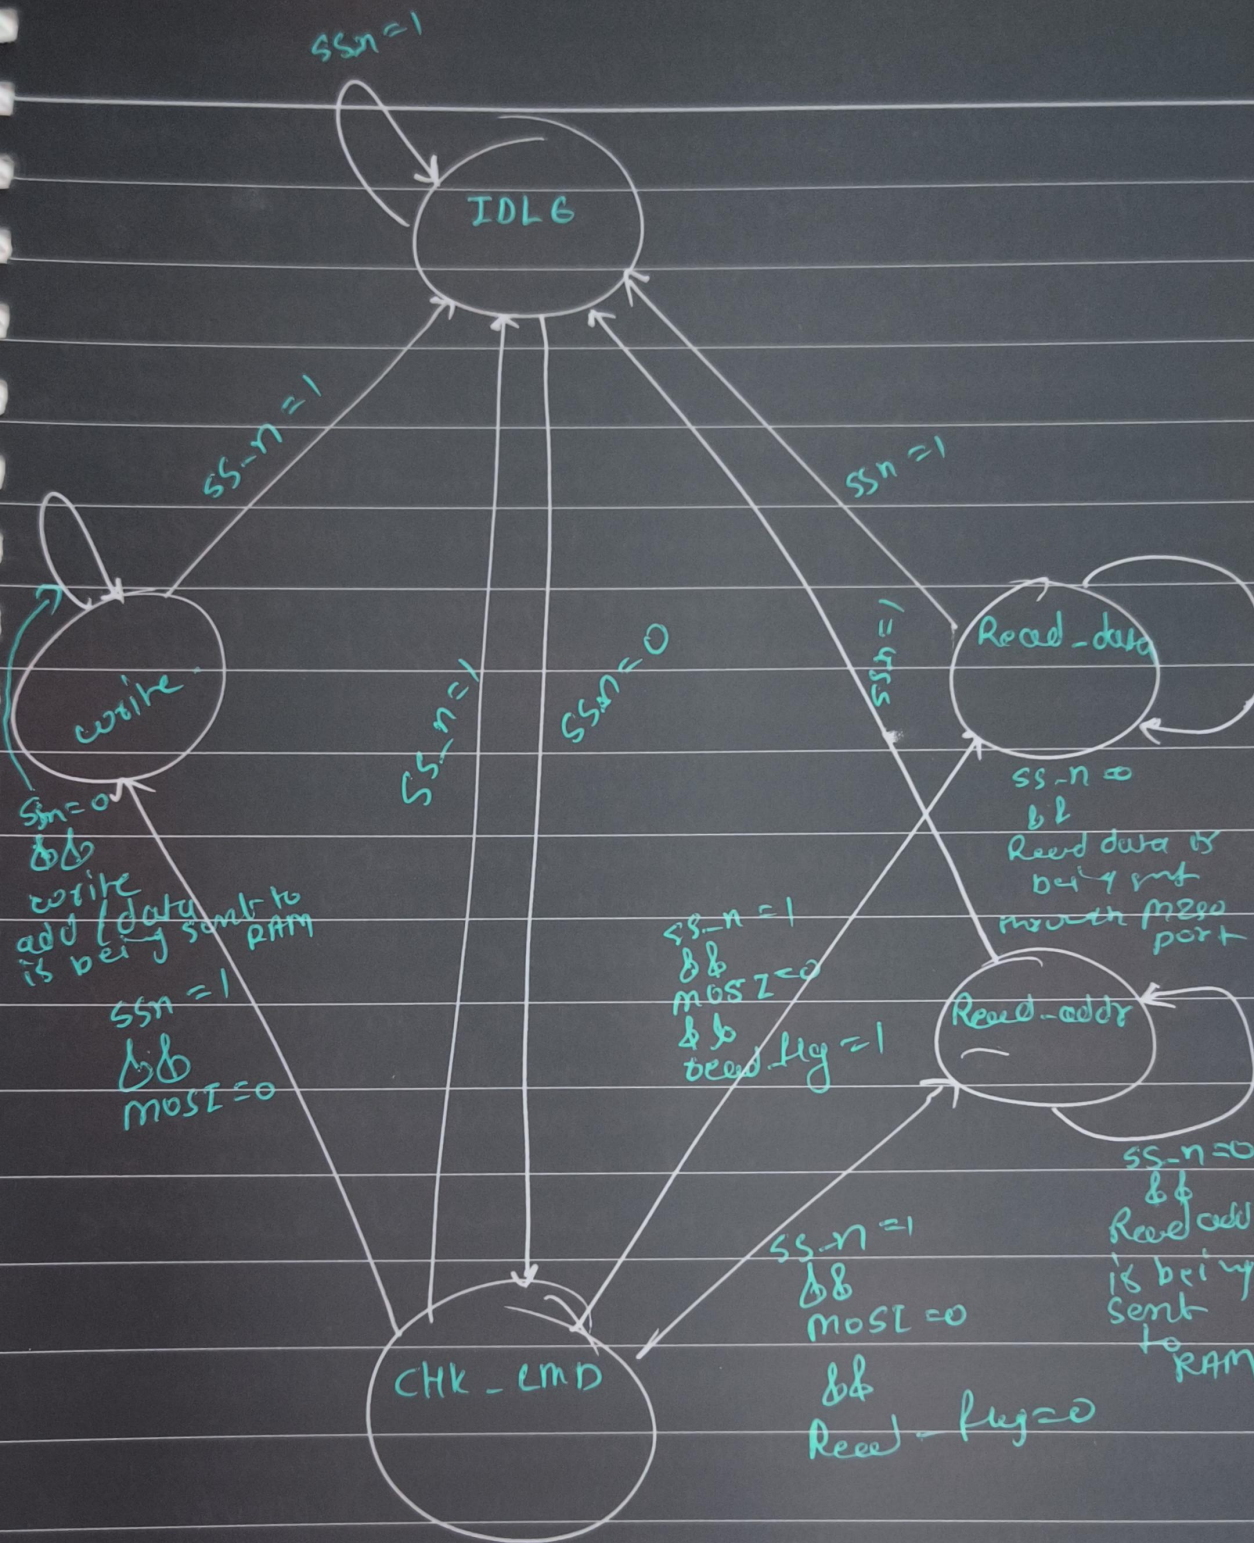 SSn=1
IDLE
SS-n=1
SSn=1
SS_n=1
SSn=0
SSn=1
write
Read_data
SSn=0
&&
write
add/data
is being sent to
RAM
SS-n=0
&&
Read data is
being sent
through MISO
port
SSn=1
&&
MOSI=0
SS_n=1
&&
MOSI=0
&&
read flag=1
Read-addr
SS_n=0
&&
Read add
is being
sent
to
RAM
SS_n=1
&&
MOSI=0
&&
Read_flag=0
CHK_CMD